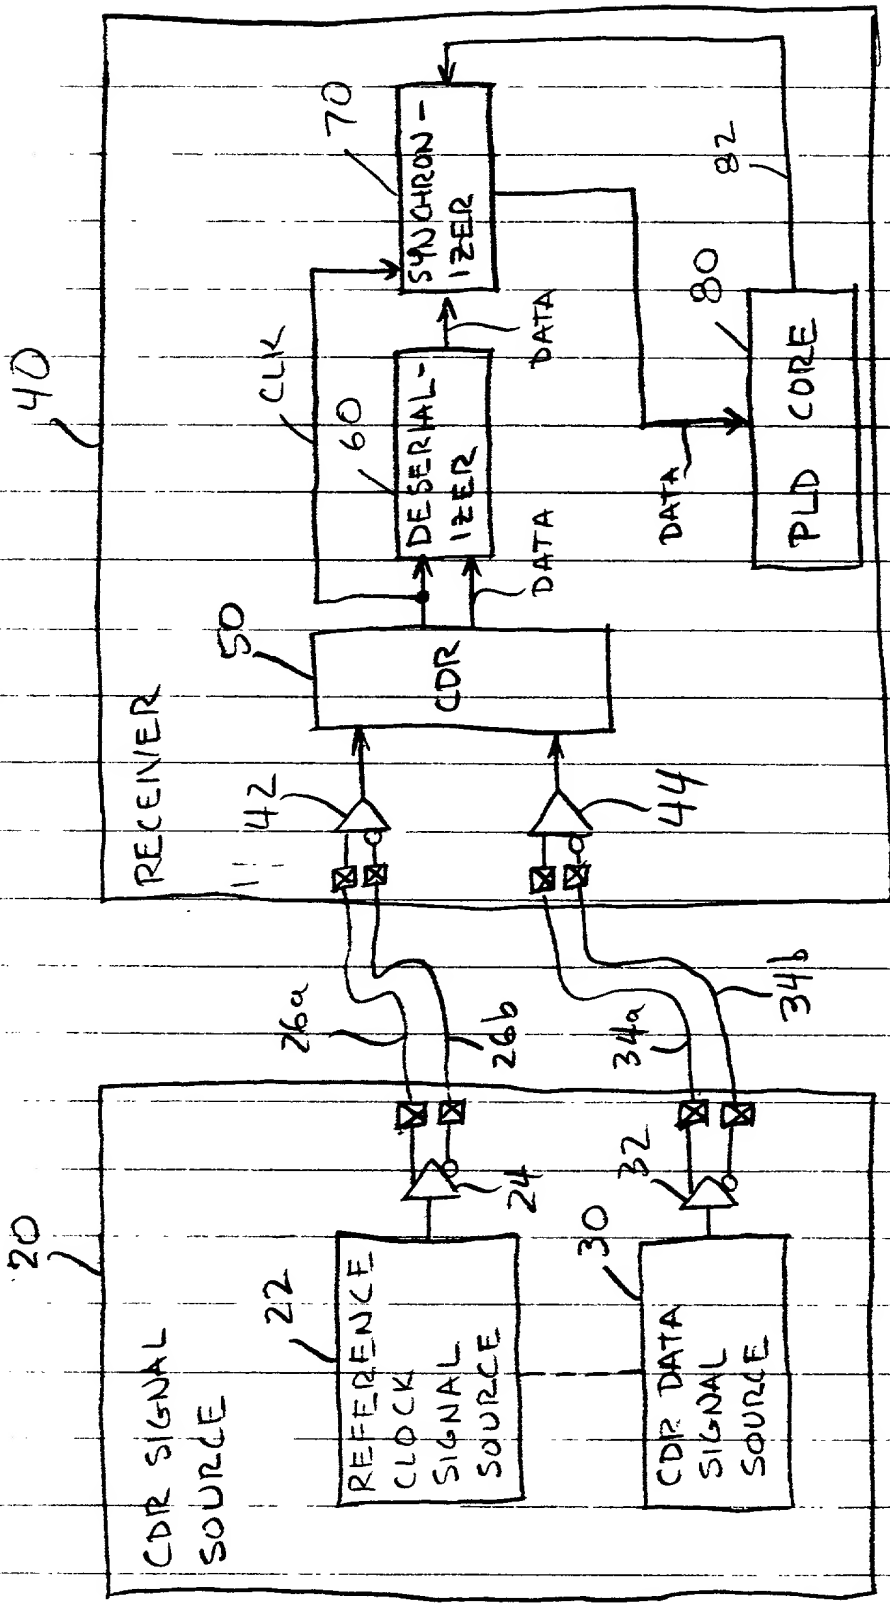 20
CDR SIGNAL
SOURCE
22
REFERENCE
CLOCK
SIGNAL
SOURCE
24
26a
26b
30
CDR DATA
SIGNAL
SOURCE
32
34a
34b
40
RECEIVER
42
44
50
CDR
CLK
60
DESERIAL-
IZER
DATA
DATA
70
SYNCHRON-
IZER
DATA
80
PLD CORE
82